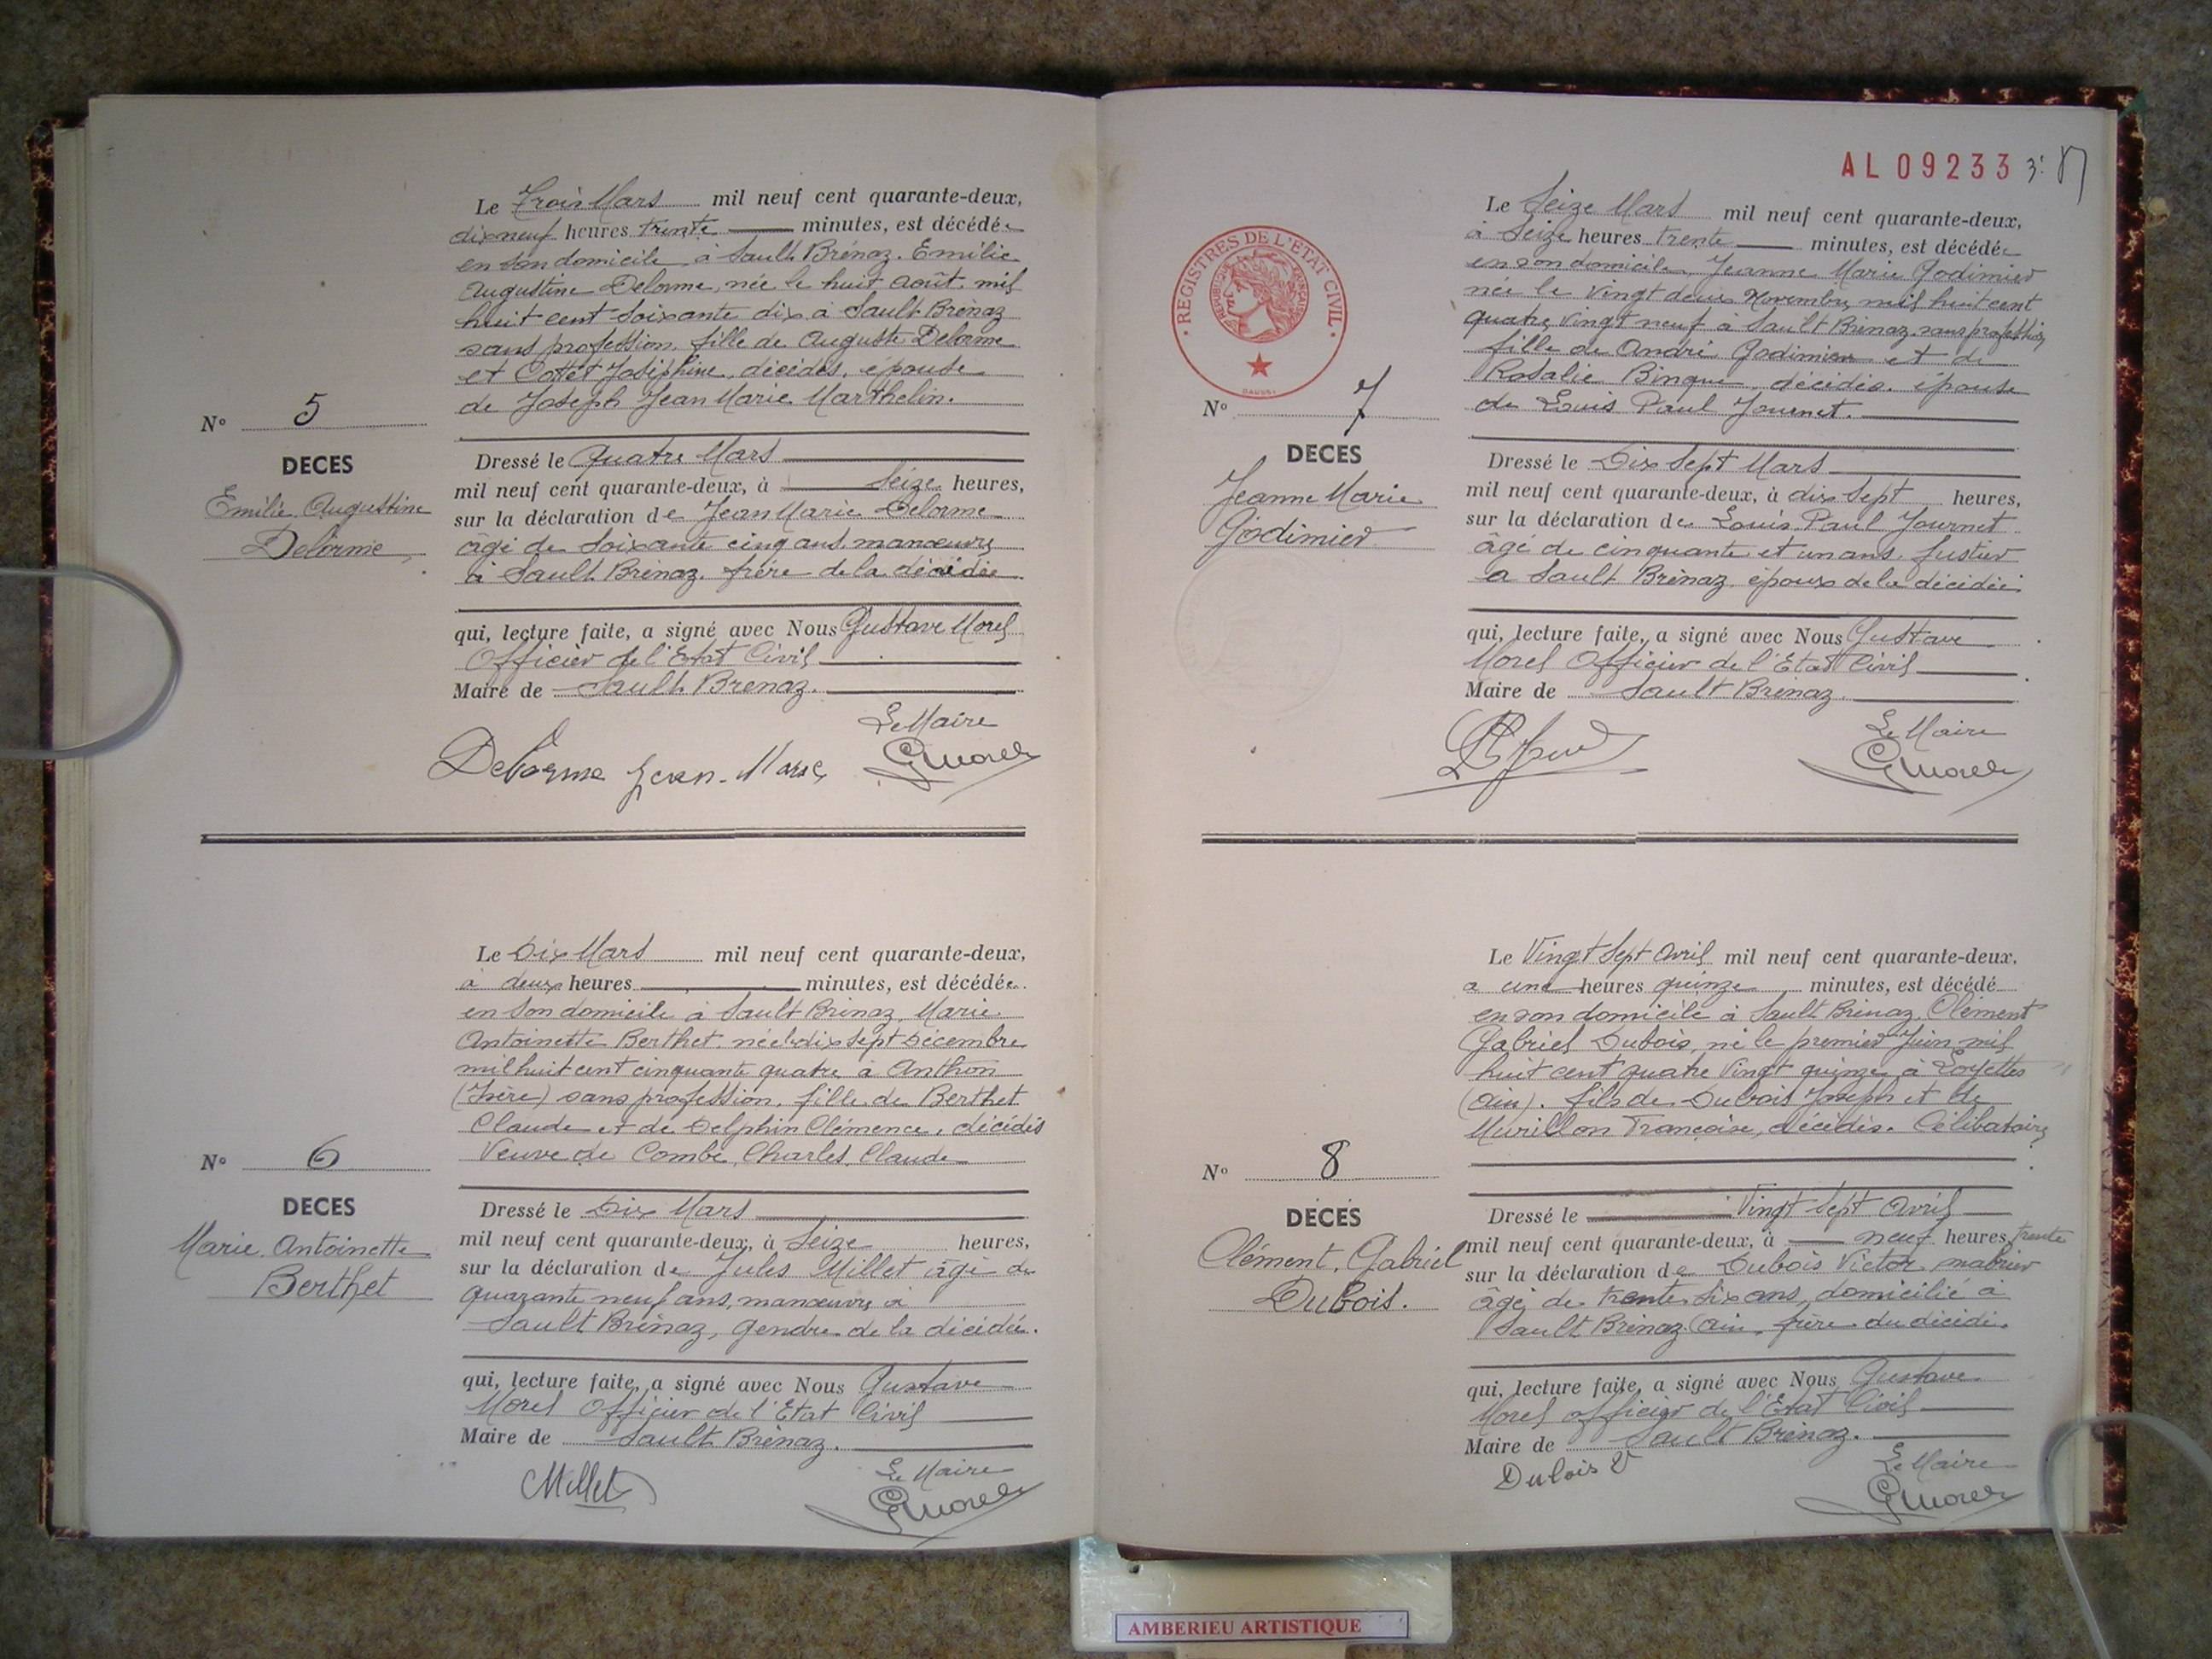 Le Trois Mars mil neuf cent quarante-deux,
dixneuf heures trente minutes, est décédée
en son domicile à Sault Brénaz. Emilie
Augustine Delorme, née le huit août mil
huit cent soixante dix à Sault Brénaz
sans profession, fille de Auguste Delorme
et Cottet Joséphine, décédés, épouse
de Joseph Jean Marie Marthelin.
N° 5
DECES
Emilie Augustine
Delorme
Dressé le Quatre Mars
mil neuf cent quarante-deux, à Seize heures,
sur la déclaration de Jean Marie Delorme
âgé de soixante cinq ans, manœuvre
à Sault Brénaz, frère de la décédée
qui, lecture faite, a signé avec Nous Gustave Morel
Officier de l'Etat Civil
Maire de Sault Brénaz.
Le Maire
Delorme Jean-Marie
GMorel
Le Dix Mars mil neuf cent quarante-deux,
à deux heures minutes, est décédée
en son domicile à Sault Brénaz, Marie
Antoinette Berthet, née le dix sept Décembre
mil huit cent cinquante quatre à Anthon
(Isère) sans profession, fille de Berthet
Claude et de Delphin Clémence, décédés
Veuve de Combe, Charles, Claude
N° 6
DECES
Marie Antoinette
Berthet
Dressé le Dix Mars
mil neuf cent quarante-deux, à Seize heures,
sur la déclaration de Jules Millet âgé de
quarante neuf ans, manœuvre à
Sault Brénaz, gendre de la décédée.
qui, lecture faite, a signé avec Nous Gustave
Morel Officier de l'Etat Civil
Maire de Sault Brénaz.
Le Maire
Millet
GMorel
AL 09233
REGISTRES DE L'ETAT CIVIL
REPUBLIQUE FRANÇAISE
Le Seize Mars mil neuf cent quarante-deux,
à Seize heures trente minutes, est décédée
en son domicile, Jeanne Marie Godimier
née le vingt deux Novembre mil huit cent
quatre vingt neuf à Sault Brénaz, sans profession,
fille de André Godimier et de
Rosalie Binque, décédés. épouse
de Louis Paul Journet.
N° 7
DECES
Jeanne Marie
Godimier
Dressé le Dix Sept Mars
mil neuf cent quarante-deux, à dix sept heures,
sur la déclaration de Louis Paul Journet
âgé de cinquante et un ans,
à Sault Brénaz, époux de la décédée
qui, lecture faite, a signé avec Nous Gustave
Morel Officier de l'Etat Civil
Maire de Sault Brénaz
Le Maire
GMorel
Le Vingt Sept Avril mil neuf cent quarante-deux,
à cinq heures quinze minutes, est décédé
en son domicile à Sault Brénaz, Clément
Gabriel Dubois, né le premier Juin mil
huit cent quatre vingt quinze à Loyettes
(Ain). fils de Dubois Joseph et de
Murillon Françoise, décédés. Célibataire
N° 8
DÉCÈS
Clément, Gabriel
Dubois.
Dressé le Vingt Sept Avril
mil neuf cent quarante-deux, à neuf heures, trente
sur la déclaration de Dubois Victor
âgé de trente six ans, domicilié à
Sault Brénaz (Ain, frère du décédé.
qui, lecture faite, a signé avec Nous Gustave
Morel officier de l'Etat Civil
Maire de Sault Brénaz.
Dubois V
Le Maire
GMorel
AMBERIEU ARTISTIQUE